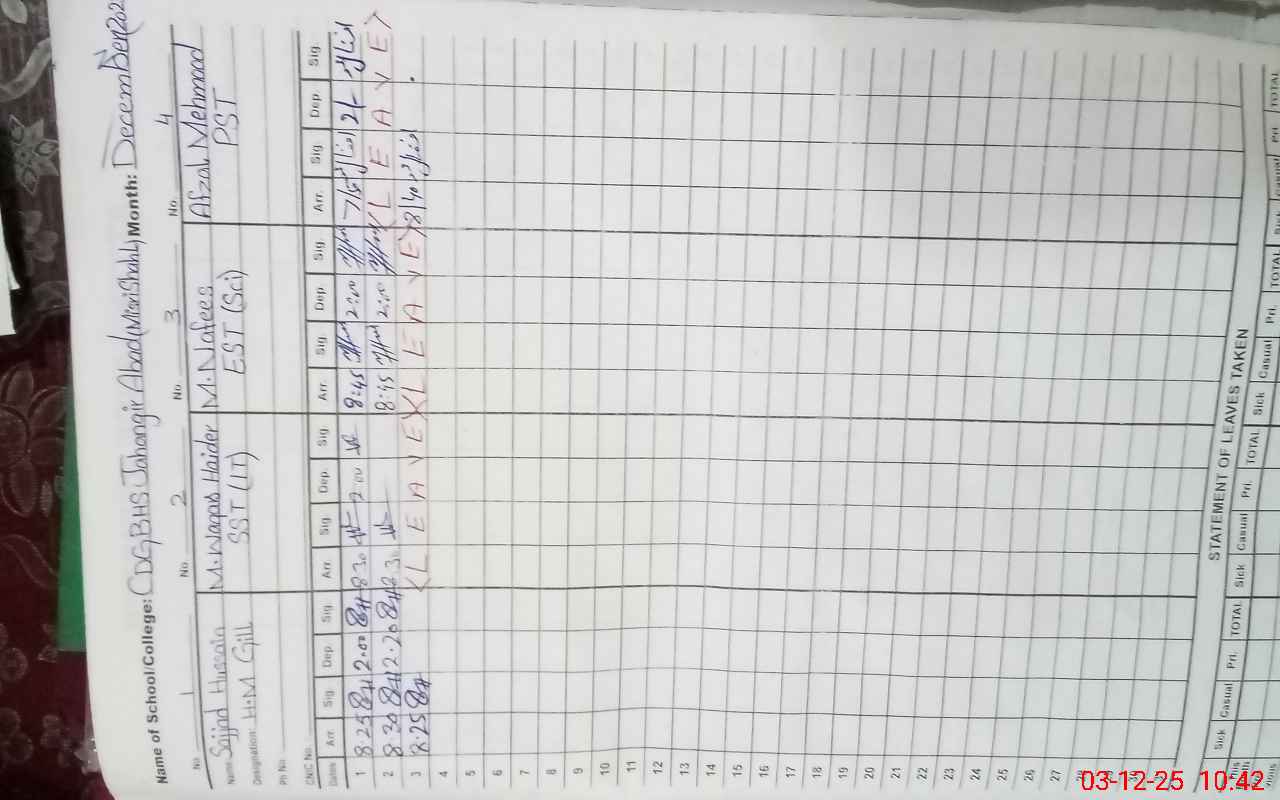 Name of School/College: CDGBHS Jahangir Abad (Misri Shah L) Month: December 202
No. 1 No. 2 No. 3 No. 4
Name Sajjad Hussain M. Waqas Haider M. Nafees Afzal Mehmood
Designation: H.M Gill SST (IT) EST (Sci) PST
Ph No.
CNIC No.
Dates Arr. Sig Dep. Sig. Arr. Sig Dep. Sig Arr. Sig. Dep. Sig. Arr. Sig Dep. Sig.
1 8.25 2.00 8:30 2:00 8:45 2:00
2 8:30 2.20 8:30 8:45 2:00 < L E A V E >
3 8:25 < L E A V E > < L E A V E > 8/40
4
5
6
7
8
9
10
11
12
13
14
15
16
17
18
19
20
21
22
23
24
25
26
27
28
STATEMENT OF LEAVES TAKEN
Sick Casual Pri. TOTAL Sick Casual Pri. TOTAL Sick Casual Pri. TOTAL Casual Pri. TOTAL
03-12-25 10:42